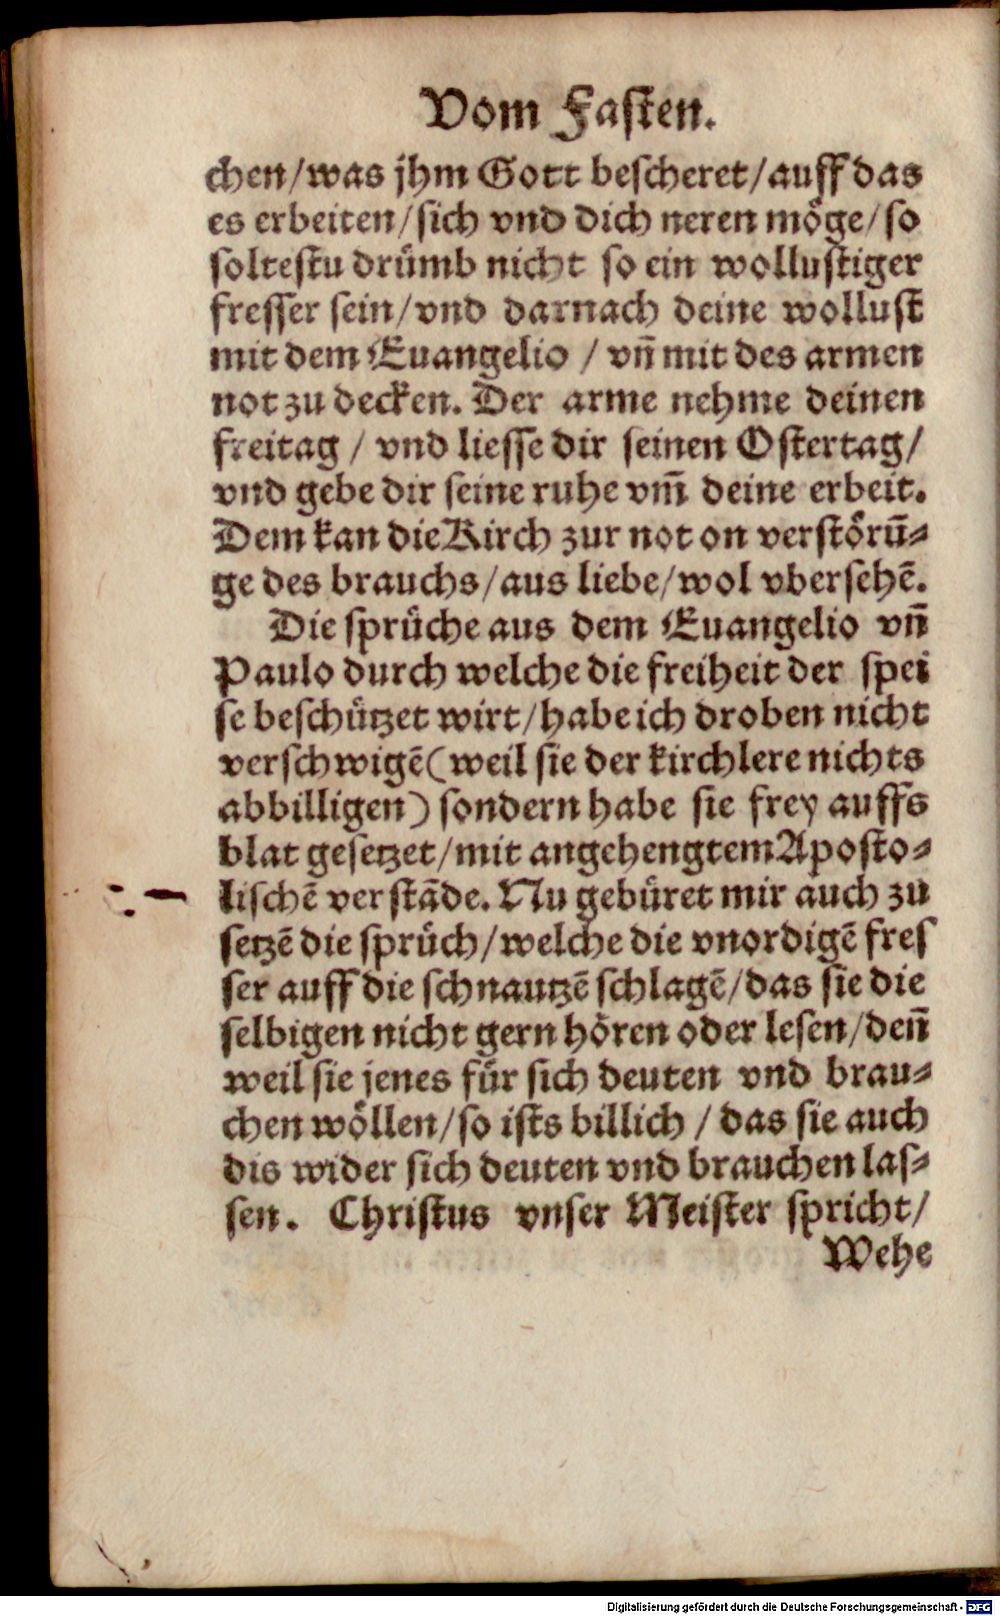 Vom Fasten.
chen/was jhm Gott bescheret/auff das
es erbeiten/sich vnd dich neren möge/so
soltestu drümb nicht so ein wollustiger
fresser sein/vnd darnach deine wollust
mit dem Euangelio / vn̄ mit des armen
not zu decken. Der arme nehme deinen
freitag / vnd liesse dir seinen Ostertag/
vnd gebe dir seine ruhe vm̄ deine erbeit.
Dem kan die Kirch zur not on verstörū-
ge des brauchs/aus liebe/wol vbersehē.
Die sprüche aus dem Euangelio vn̄
Paulo durch welche die freiheit der spei
se beschützet wirt/habe ich droben nicht
verschwigē(weil sie der kirchlere nichts
abbilligen) sondern habe sie frey auffs
blat gesetzet/mit angehengtem Aposto-
lischē verstāde. Nu gebüret mir auch zu
setzē die sprüch/welche die vnordigē fres
ser auff die schnautzē schlagē/das sie die
selbigen nicht gern hören oder lesen/den̄
weil sie jenes für sich deuten vnd brau-
chen wöllen/so ists billich / das sie auch
dis wider sich deuten vnd brauchen las-
sen. Christus vnser Meister spricht/
Wehe
Digitalisierung gefördert durch die Deutsche Forschungsgemeinschaft - DFG